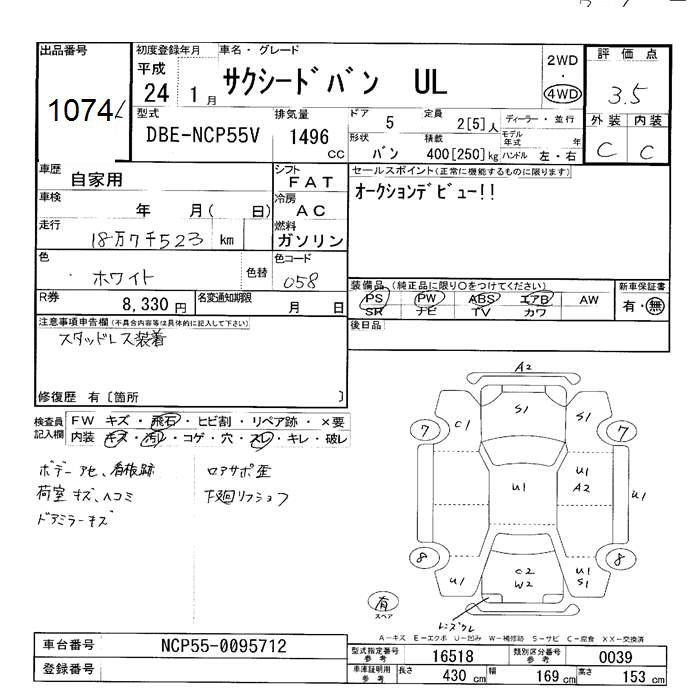 出品番号 初度登録年月 車名・グレード 2WD・4WD 評価点
1074 平成 24 1月 サクシードバン UL 3.5
型式 排気量 ドア 定員 ディーラー・並行 外装 内装
DBE-NCP55V 1496 cc 5 2[5]人 モデル年式 年 C C
形状 積載 ハンドル 左・右
バン 400[250]kg
車歴 自家用 シフト FAT セールスポイント(正常に機能するものに限ります)
車検 年 月( 日) 冷房 AC オークションデビュー!!
走行 18万7千523 km 燃料 ガソリン
色 ホワイト 色替 色コード 058
装備品(純正品に限り○をつけてください) 新車保証書
R券 8,330円 名変通知期限 月 日 PS PW ABS エアB AW 有・無
SR ナビ TV カワ
注意事項申告欄(不具合内容等は具体的に記入して下さい) 後日品
スタッドレス装着
修復歴 有〔箇所 〕
検査員記入欄 FW キズ・飛石・ヒビ割・リペア跡・×要
内装 キズ・汚レ・コゲ・穴・スレ・キレ・破レ
ボデーアセ、看板跡 ロアサポ歪
荷室キズ、ヘコミ 下廻リフショク
ドアミラーキズ
A2
C1 S1 S1
7 7
U1 U1 A2 U1
8 8
U1 C2 W2 U1 S1
有 スペア
レンズワレ
A-キズ E-エクボ U-凹み W-補修跡 S-サビ C-腐食 XX-交換済
車台番号 NCP55-0095712
型式指定番号 参考 16518 類別区分番号 参考 0039
登録番号
車庫証明用 参考 長さ 430 cm 幅 169 cm 高さ 153 cm